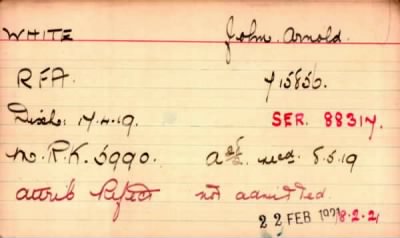 WHITE John Arnold.
RFA. 715850.
Disch: 17.4.19. SER. 88317.
M.R.K. 5990. recd. 5.5.19
attrib Reject not admitted.
22 FEB 1921 8.2.21